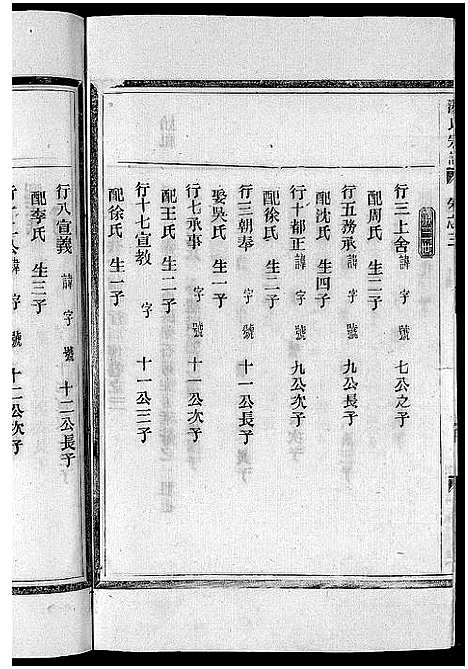 氏宗譜
行三上舍 諱 字 號 七公之子
配周氏 生二子
行五務承 諱 字 號 九公長子
配沈氏 生四子
行十都正 諱 字 號 九公次子
配徐氏 生一子
行三朝奉 字 號 十一公長子
娶吳氏 生一子
行七承事 字 號 十一公次子
配王氏 生二子
行十七宣教 字 十一公三子
配徐氏 生一子
行八宣義 諱 字 號 十二公長子
配李氏 生三子